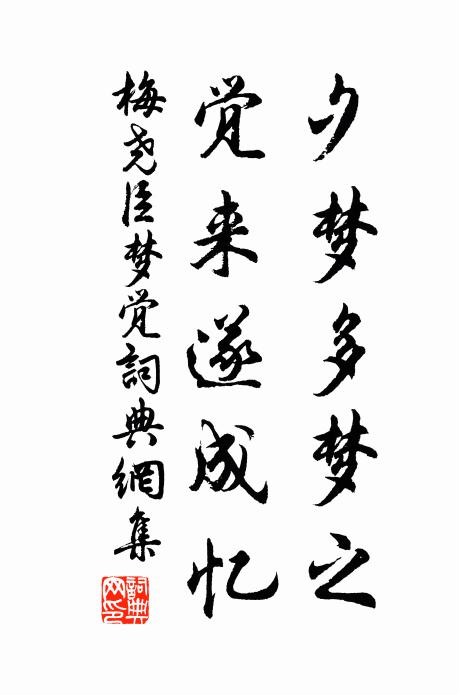 夕梦多梦之
觉来遂成忆
梅尧臣梦觉詞典網集
詞典
网印